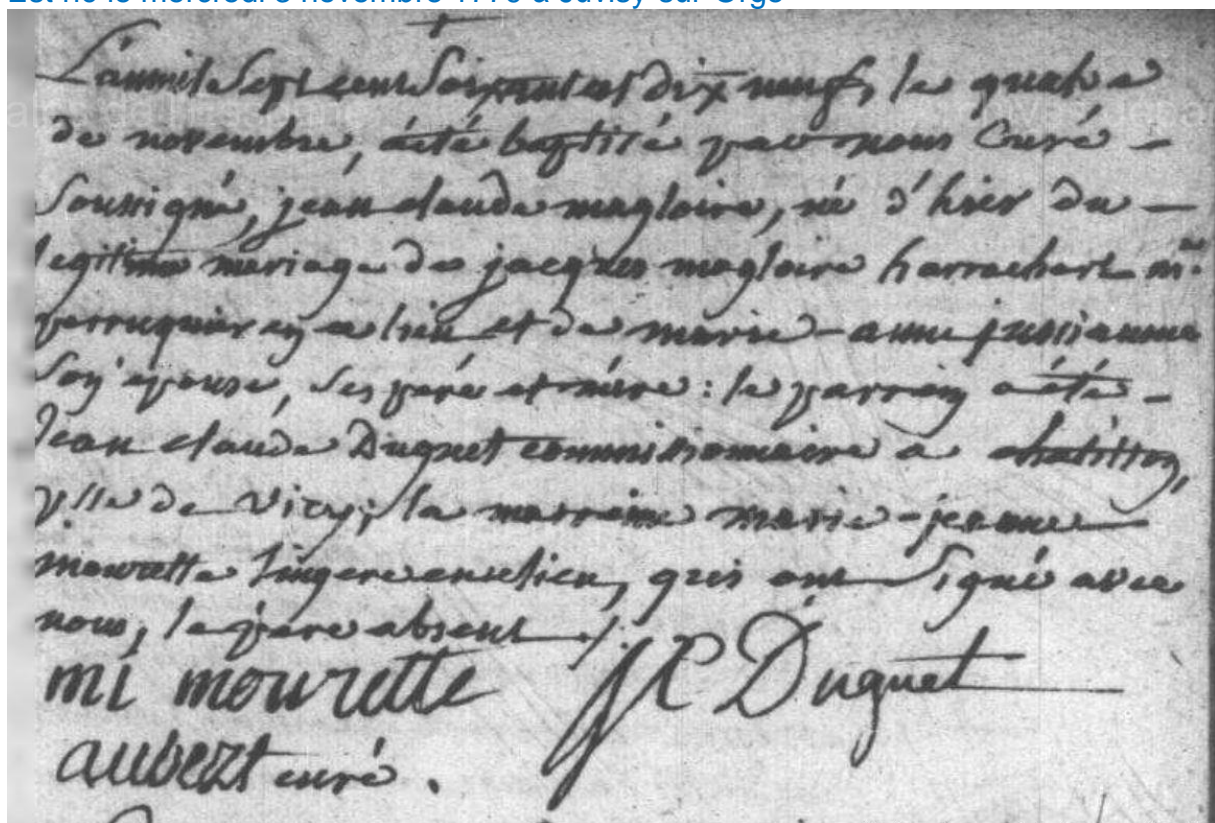 Est né le mercredi 3 novembre 1779 à Juvisy-sur-Orge
L'an mil Sept cent Soixante et dix neuf, le quatre
de novembre, a été baptisé par nous Curé -
Soussigné, jean claude magloire, né d'hier du -
legitime mariage de jacques magloire harrachart m.e
perruquier en ce lieu et de marie-anne jussianne
Son epouse, Ses pere et mere : le parrein a été -
Jean claude Duguet commissionnaire a chatillon,
p.sse de Viry; la marreine marie-jeanne
mourette lingere en ce lieu, qui ont Signé avec
nous, le pere absent ./.
mj mourette JC Duguet
aubert curé.